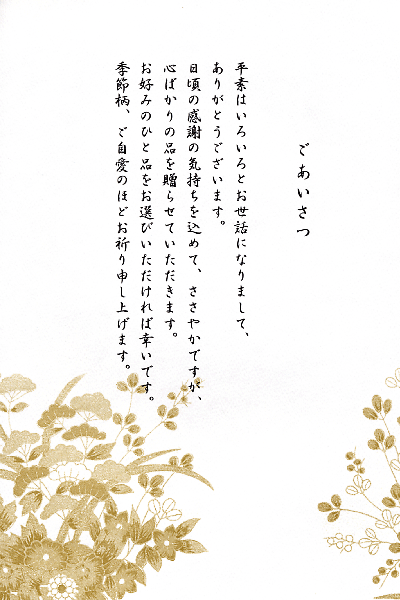 ごあいさつ
平素はいろいろとお世話になりまして、
ありがとうございます。
日頃の感謝の気持ちを込めて、ささやかですが、
心ばかりの品を贈らせていただきます。
お好みのひと品をお選びいただければ幸いです。
季節柄、ご自愛のほどお祈り申し上げます。